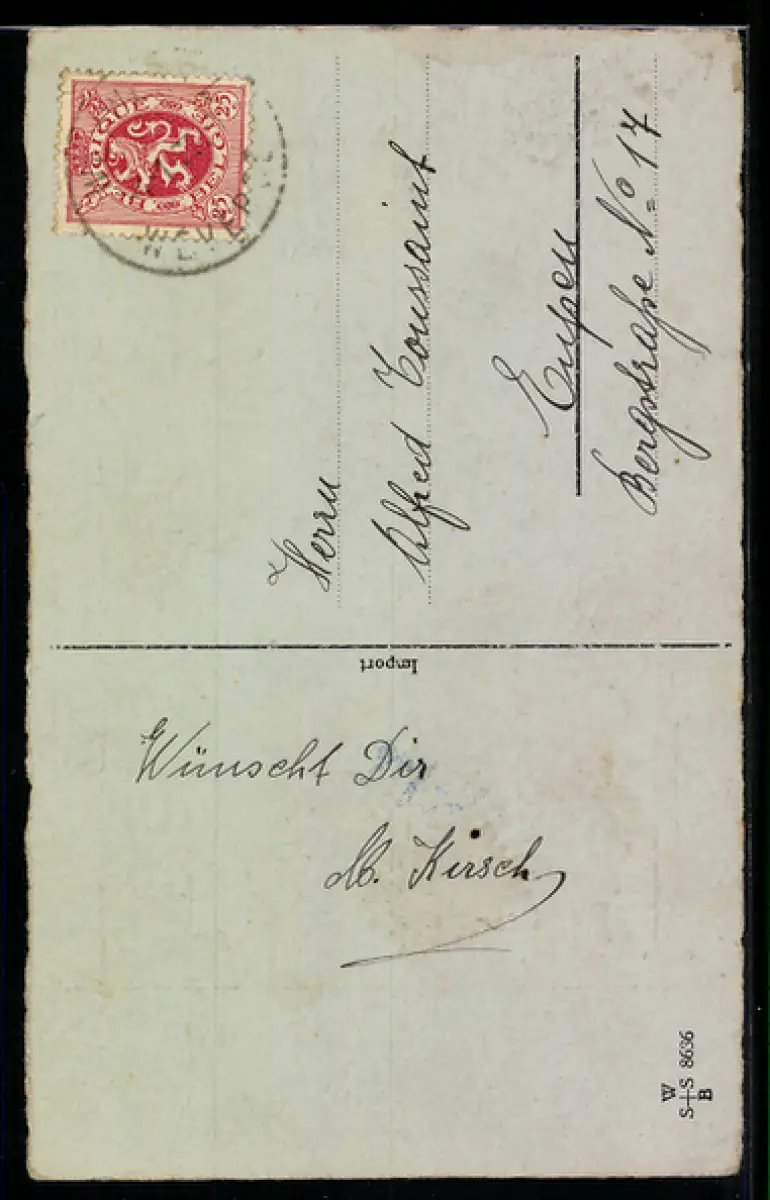 BELGIQUE BELGIE
Herrn
Alfred Toussaint
Eupen
Bergstraße No 17
Import
Wünscht Dir
M. Kirsch
W
S+S 8636
B